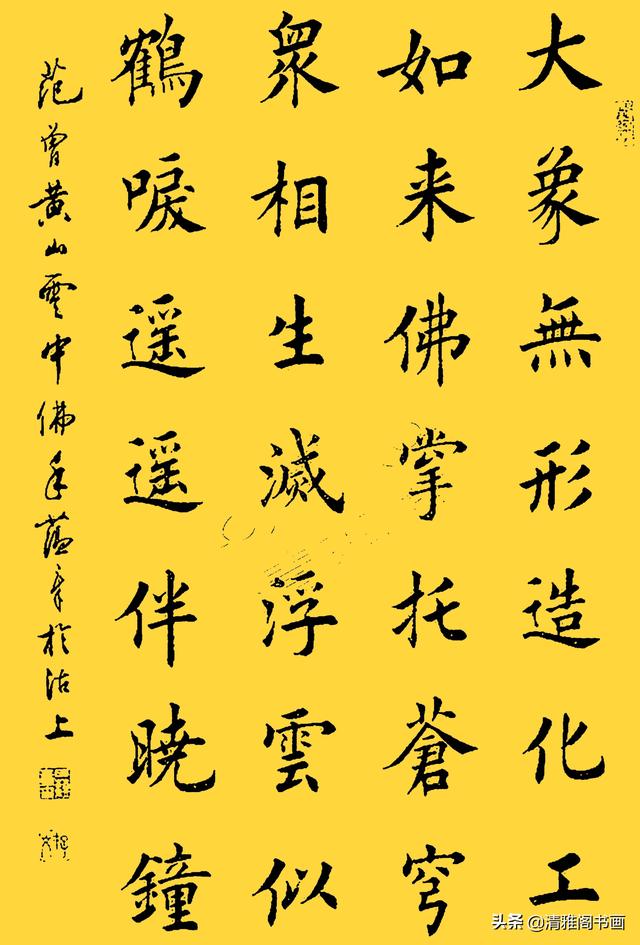 大象無形造化工
如来佛掌托蒼穹
衆相生滅浮雲似
鶴唳遥遥伴曉鐘
范曾黄山雲中佛手蘊章於沽上
头条 @清雅阁书画